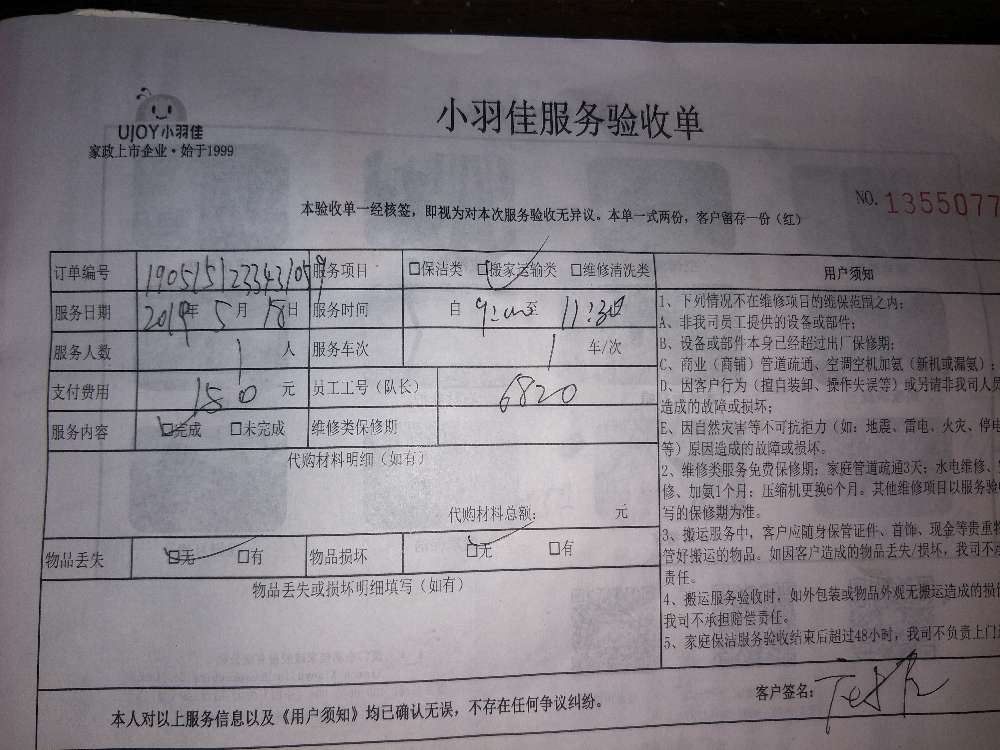 UJOY小羽佳
家政上市企业·始于1999
小羽佳服务验收单
NO. 1355077
本验收单一经核签，即视为对本次服务验收无异议。本单一式两份，客户留存一份（红）
订单编号 服务项目 □保洁类 □搬家运输类 □维修清洗类
服务日期 2019年 5月 18日 服务时间 自 9:00至 11:30
服务人数 1 人 服务车次 1 车/次
支付费用 150 元 员工工号（队长） 6820
服务内容 □完成 □未完成 维修类保修期
代购材料明细（如有）
代购材料总额： 元
物品丢失 □无 □有 物品损坏 □无 □有
物品丢失或损坏明细填写（如有）
用户须知
1、下列情况不在维修项目的维保范围之内：
A、非我司员工提供的设备或部件；
B、设备或部件本身已经超过出厂保修期；
C、商业（商铺）管道疏通、空调空机加氨（新机或漏氨）；
D、因客户行为（擅自装卸、操作失误等）或另请非我司人员
造成的故障或损坏；
E、因自然灾害等不可抗拒力（如：地震、雷电、火灾、停电
等）原因造成的故障或损坏。
2、维修类服务免费保修期：家庭管道疏通3天；水电维修、
修、加氨1个月；压缩机更换6个月。其他维修项目以服务验
写的保修期为准。
3、搬运服务中，客户应随身保管证件、首饰、现金等贵重物
管好搬运的物品。如因客户造成的物品丢失/损坏，我司不承
责任。
4、搬运服务验收时，如外包装或物品外观无搬运造成的损
我司不承担赔偿责任。
5、家庭保洁服务验收结束后超过48小时，我司不负责上门
本人对以上服务信息以及《用户须知》均已确认无误，不存在任何争议纠纷。
客户签名：